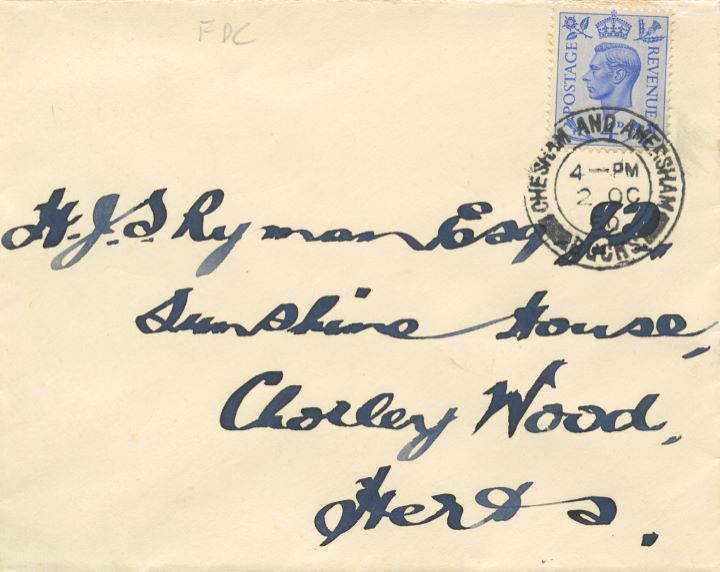 FDC
POSTAGE REVENUE
4D
CHESHAM AND AMERSHAM
4 — PM
2 OC
50
BUCKS
H.J.S Ryman Esq J.P.,
Sunshine House,
Chorley Wood,
Herts.